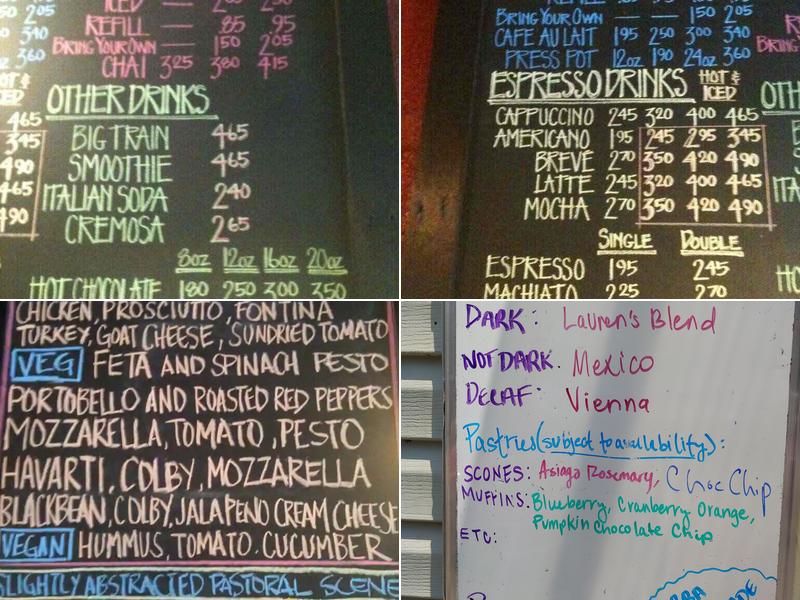 ICED
05 2.05
REFILL — .85 .95
40 3.40
BRING YOUR OWN — 1.50 2.05
3.60
CHAI 3.25 3.80 4.15
OTHER DRINKS
4.65
3.45 BIG TRAIN 4.65
4.90 SMOOTHIE 4.65
4.65 ITALIAN SODA 2.40
4.90 CREMOSA 2.65
8oz 12oz 16oz 20oz
HOT CHOCOLATE 1.80 2.50 3.00 3.50
REFILL
BRING YOUR OWN — — 1.50 2.05
CAFE AU LAIT 1.95 2.50 3.00 3.40
PRESS POT 12oz 1.90 24oz 3.60
ESPRESSO DRINKS HOT & ICED
CAPPUCCINO 2.45 3.20 4.00 4.65
AMERICANO 1.95 2.45 2.95 3.45
BREVÉ 2.70 3.50 4.20 4.90
LATTE 2.45 3.20 4.00 4.65
MOCHA 2.70 3.50 4.20 4.90
SINGLE DOUBLE
ESPRESSO 1.95 2.45
MACHIATO 2.25 2.70
CHICKEN, PROSCIUTTO, FONTINA
TURKEY, GOAT CHEESE, SUNDRIED TOMATO
VEG FETA AND SPINACH PESTO
PORTOBELLO AND ROASTED RED PEPPERS
MOZZARELLA, TOMATO, PESTO
HAVARTI, COLBY, MOZZARELLA
BLACKBEAN, COLBY, JALAPENO CREAM CHEESE
VEGAN HUMMUS, TOMATO, CUCUMBER
SLIGHTLY ABSTRACTED PASTORAL SCENE
DARK: Lauren's Blend
NOT DARK. Mexico
DECAF: Vienna
Pastries (subject to availability):
SCONES: Asiago Rosemary, Choc Chip
MUFFINS: Blueberry, Cranberry Orange,
Pumpkin Chocolate Chip
ETC: